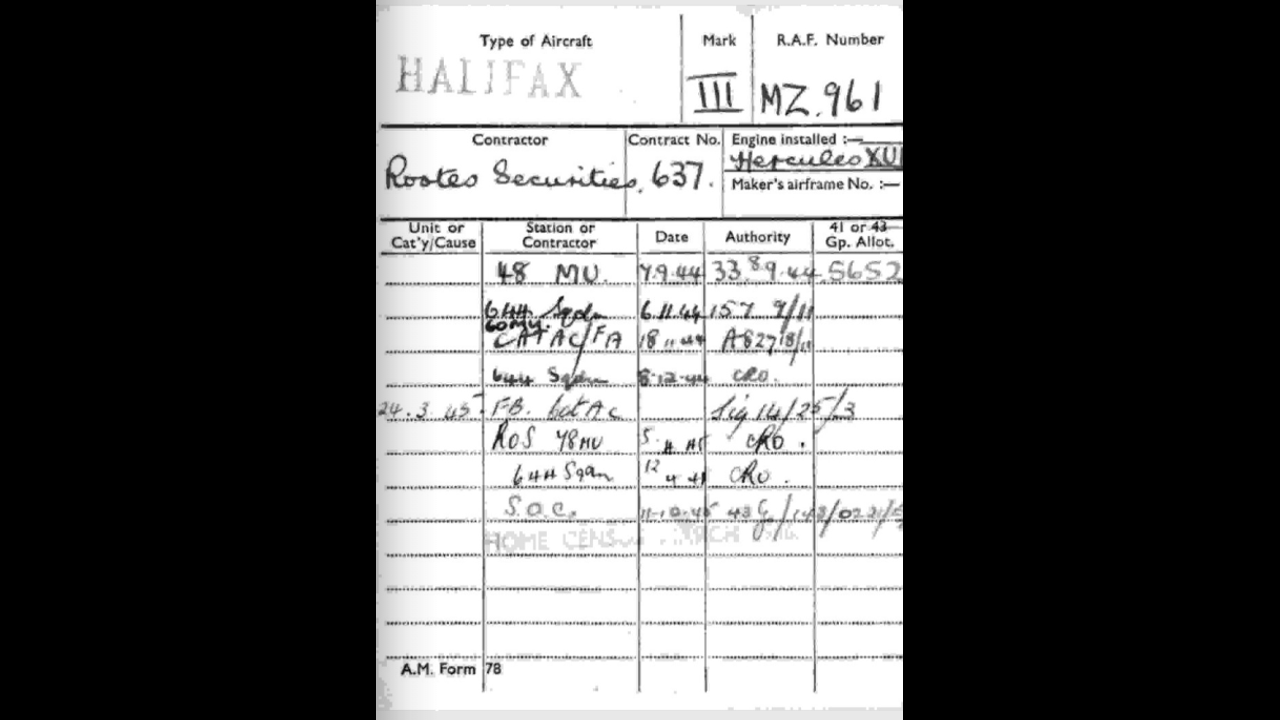 Type of Aircraft Mark R.A.F. Number
HALIFAX III MZ.961
Contractor Contract No. Engine installed :—
Rootes Securities. 637. Hercules XVI
Maker's airframe No. :—
Unit or Cat'y/Cause Station or Contractor Date Authority 41 or 43 Gp. Allot.
48 MU. 7.9.44 33 8.9.44 5652
644 Sqdn 6.11.44 157 9/11
60 MU.
CAT AC/FA 18.11.44 A827 18/11
644 Sqdn 8.12.44 CRO.
24.3.45 F.B. Cat Ac Sig 14/25/3
ROS 78 MU 5 4 45 CRO.
644 Sqdn 12 4 45 CRO.
S.O.C. 43 G/
HOME CENSUS MARCH
A.M. Form 78